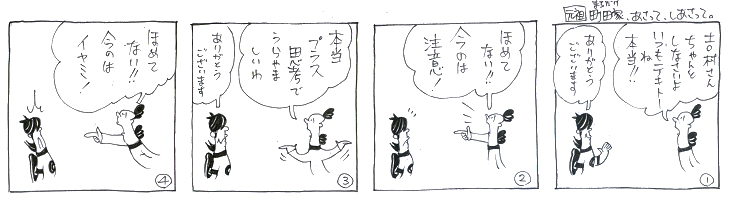 元祖 町田家、あさって、しあさって。
まちだけ
吉村さん
ちゃんと
しなさいよ
いつもテキトーね
本当!!
ありがとう
ございます
①
ほめて
ない!!
今のは
注意!
②
本当
プラス
思考で
うらやま
しいわ
ありがとう
ございます
③
ほめて
ない!!
今のは
イヤミ!
④